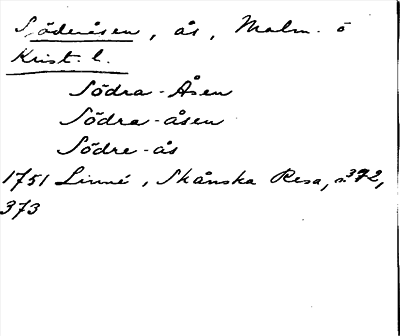 Söderåsen, ås, Malm. o
Krist. l.
Södra-Åsen
Södra-åsen
Södre-ås
1751 Linné, Skånska Resa, s. 372,
373